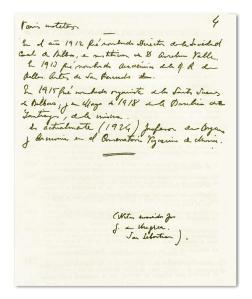 4
En el año 1912 fué nombrado Director de la Sociedad
Coral de Bilbao, en sustitución de D. Aureliano Valle.
En 1913 fué nombrado Académico de la R. A. de
Bellas Artes de San Fernando
En 1915 fué nombrado organista de la Santa
de Bilbao, y en Mayo de 1918 de la Basílica de
Santiago, de la misma.
Es actualmente (1924) Profesor de Organo
y Harmonia en el Conservatorio Vizcaino de Música.
San Sebastian).